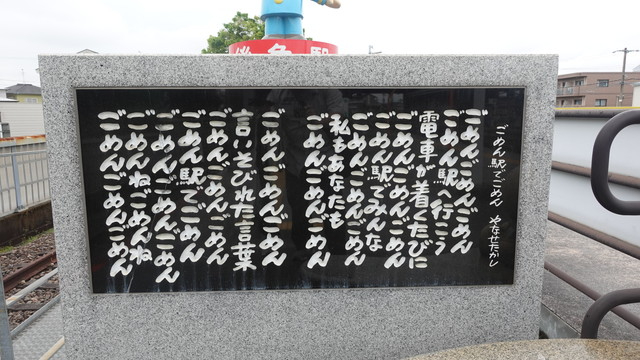 ごめん駅でごめん やなせたかし
ごめんごめんごめん
ごめん駅行こう
電車が着くたびに
ごめんごめんごめん
ごめん駅でみんな
ごめんごめんごめん
私もあなたも
ごめんごめんごめん
ごめんごめんごめん
言いそびれた言葉
ごめんごめんごめん
ごめん駅でごめん
ごめんごめんごめん
ごめんねごめんね
ごめんごめんごめん